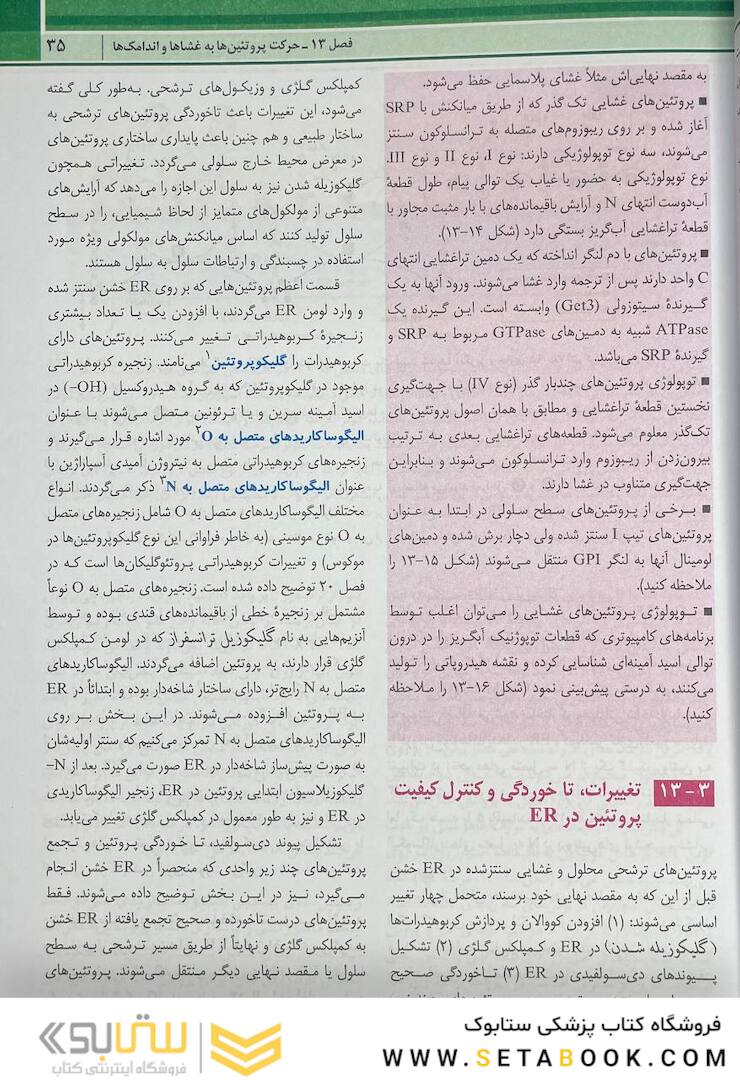 فصل ۱۳ - حرکت پروتئین‌ها به غشاها و اندامک‌ها
۳۵
به مقصد نهایی‌اش مثلاً غشای پلاسمایی حفظ می‌شود.
■ پروتئین‌های غشایی تک گذر که از طریق میانکنش با SRP
آغاز شده و بر روی ریبوزوم‌های متصله به ترانسلوکون سنتز
می‌شوند، سه نوع توپولوژیکی دارند: نوع I، نوع II و نوع III.
نوع توپولوژیکی به حضور یا غیاب یک توالی پیام، طول قطعهٔ
آب‌دوست انتهای N و آرایش باقیمانده‌های با بار مثبت مجاور با
قطعهٔ تراغشایی آب‌گریز بستگی دارد (شکل ۱۴-۱۳).
■ پروتئین‌های با دم لنگر انداخته که یک دمین تراغشایی انتهای
C واحد دارند پس از ترجمه وارد غشا می‌شوند. ورود آنها به یک
گیرندهٔ سیتوزولی (Get3) وابسته است. این گیرنده یک
ATPase شبیه به دمین‌های GTPase مربوط به SRP و
گیرندهٔ SRP می‌باشد.
■ توپولوژی پروتئین‌های چندبار گذر (نوع IV) با جهت‌گیری
نخستین قطعهٔ تراغشایی و مطابق با همان اصول پروتئین‌های
تک‌گذر معلوم می‌شود. قطعه‌های تراغشایی بعدی به ترتیب
بیرون‌زدن از ریبوزوم وارد ترانسلوکون می‌شوند و بنابراین
جهت‌گیری متناوب در غشا دارند.
■ برخی از پروتئین‌های سطح سلولی در ابتدا به عنوان
پروتئین‌های تیپ I سنتز شده ولی دچار برش شده و دمین‌های
لومینال آنها به لنگر GPI منتقل می‌شوند (شکل ۱۵-۱۳ را
ملاحظه کنید).
■ توپولوژی پروتئین‌های غشایی را می‌توان اغلب توسط
برنامه‌های کامپیوتری که قطعات توپوژنیک آبگریز را در درون
توالی اسید آمینه‌ای شناسایی کرده و نقشه هیدروپاتی را تولید
می‌کنند، به درستی پیش‌بینی نمود (شکل ۱۶-۱۳ را ملاحظه
کنید).
۱۳-۳ تغییرات، تا خوردگی و کنترل کیفیت
پروتئین در ER
پروتئین‌های ترشحی محلول و غشایی سنتزشده در ER خشن
قبل از این که به مقصد نهایی خود برسند، متحمل چهار تغییر
اساسی می‌شوند: (۱) افزودن کووالان و پردازش کربوهیدرات‌ها
(گلیکوزیله شدن) در ER و کمپلکس گلژی (۲) تشکیل
پیوندهای دی‌سولفیدی در ER (۳) تاخوردگی صحیح
کمپلکس گلژی و وزیکول‌های ترشحی. به‌طور کلی گفته
می‌شود، این تغییرات باعث تاخوردگی پروتئین‌های ترشحی به
ساختار طبیعی و هم چنین باعث پایداری ساختاری پروتئین‌های
در معرض محیط خارج سلولی می‌گردد. تغییراتی همچون
گلیکوزیله شدن نیز به سلول این اجازه را می‌دهد که آرایش‌های
متنوعی از مولکول‌های متمایز از لحاظ شیمیایی، را در سطح
سلول تولید کنند که اساس میانکنش‌های مولکولی ویژه مورد
استفاده در چسبندگی و ارتباطات سلول به سلول هستند.
قسمت اعظم پروتئین‌هایی که بر روی ER خشن سنتز شده
و وارد لومن ER می‌گردند، با افزودن یک یا تعداد بیشتری
زنجیرهٔ کربوهیدراتی تغییر می‌کنند. پروتئین‌های دارای
کربوهیدرات را گلیکوپروتئین۱ می‌نامند. زنجیره کربوهیدراتی
موجود در گلیکوپروتئین که به گروه هیدروکسیل (OH-) در
اسید آمینه سرین و یا ترئونین متصل می‌شوند با عنوان
الیگوساکاریدهای متصل به O۲ مورد اشاره قرار می‌گیرند و
زنجیره‌های کربوهیدراتی متصل به نیتروژن آمیدی آسپاراژین با
عنوان الیگوساکاریدهای متصل به N۳ ذکر می‌گردند. انواع
مختلف الیگوساکاریدهای متصل به O شامل زنجیره‌های متصل
به O نوع موسینی (به خاطر فراوانی این نوع گلیکوپروتئین‌ها در
موکوس) و تغییرات کربوهیدراتی پروتئوگلیکان‌ها است که در
فصل ۲۰ توضیح داده شده است. زنجیره‌های متصل به O نوعاً
مشتمل بر زنجیرهٔ خطی از باقیمانده‌های قندی بوده و توسط
آنزیم‌هایی به نام گلیکوزیل ترانسفراز که در لومن کمپلکس
گلژی قرار دارند، به پروتئین اضافه می‌گردند. الیگوساکاریدهای
متصل به N رایج‌تر، دارای ساختار شاخه‌دار بوده و ابتدائاً در ER
به پروتئین افزوده می‌شوند. در این بخش بر روی
الیگوساکاریدهای متصل به N تمرکز می‌کنیم که سنتز اولیه‌شان
به صورت پیش‌ساز شاخه‌دار در ER صورت می‌گیرد. بعد از N-
گلیکوزیلاسیون ابتدایی پروتئین در ER، زنجیر الیگوساکاریدی
در ER و نیز به طور معمول در کمپلکس گلژی تغییر می‌یابد.
تشکیل پیوند دی‌سولفید، تا خوردگی پروتئین و تجمع
پروتئین‌های چند زیر واحدی که منحصراً در ER خشن انجام
می‌گیرد، نیز در این بخش توضیح داده می‌شوند. فقط
پروتئین‌های درست تاخورده و صحیح تجمع یافته از ER خشن
به کمپلکس گلژی و نهایتاً از طریق مسیر ترشحی به سطح
سلول یا مقصد نهایی دیگر منتقل می‌شوند. پروتئین‌های
فروشگاه کتاب پزشکی ستابوک
WWW.SETABOOK.COM
ستابوک
فروشگاه اینترنتی کتاب